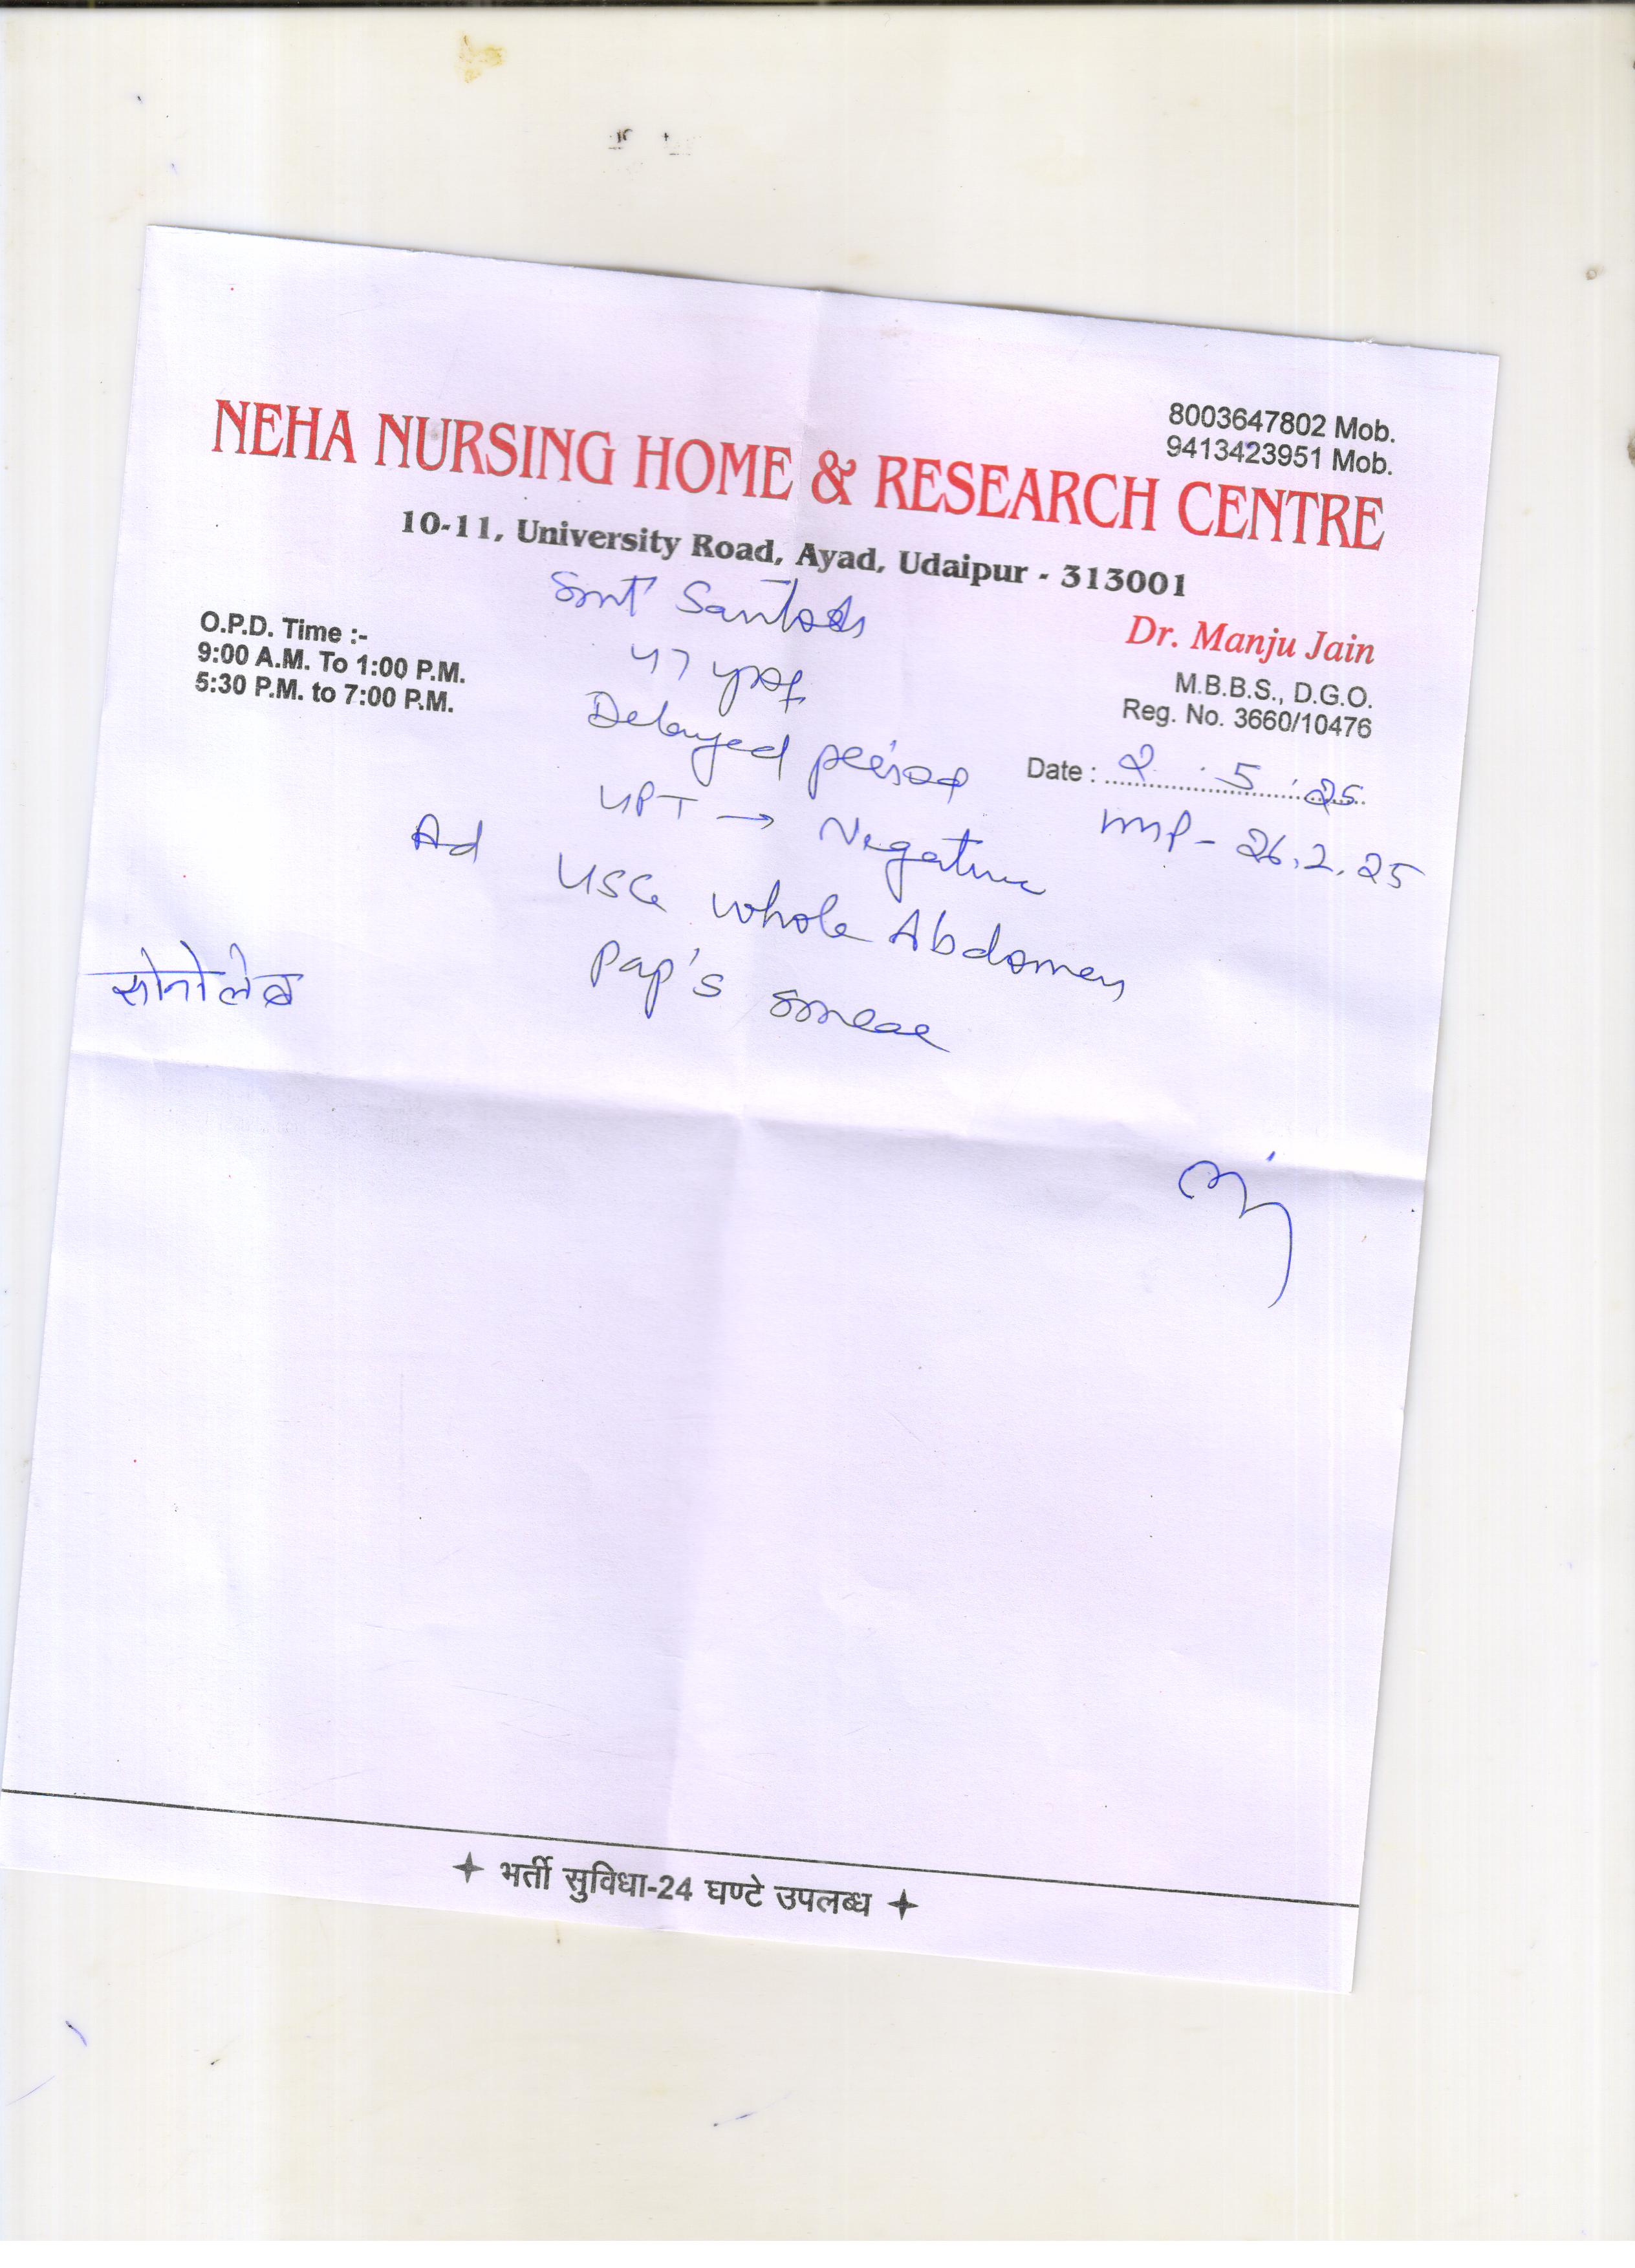 8003647802 Mob.
9413423951 Mob.
NEHA NURSING HOME & RESEARCH CENTRE
10-11, University Road, Ayad, Udaipur - 313001
Smt Santosh
O.P.D. Time :-
9:00 A.M. To 1:00 P.M.
5:30 P.M. to 7:00 P.M.
Dr. Manju Jain
M.B.B.S., D.G.O.
Reg. No. 3660/10476
47 yrs f
Date : 2 . 5 . 25
Delayed period
UPT → Negative
26.2.25
Ad USG whole Abdomen
Pap's smear
सोनोलेब
भर्ती सुविधा-24 घण्टे उपलब्ध